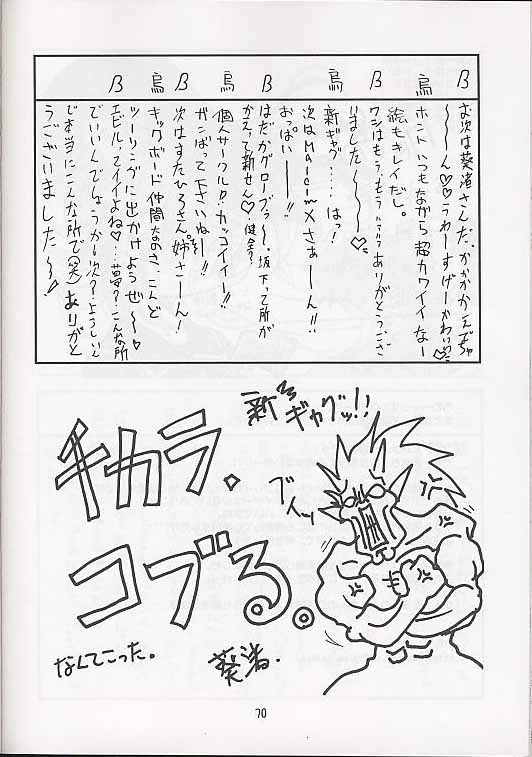 β
お次は葵渚さんだ、かかかかえでちゃ
〜〜ん♡♡うわーすげーかわいい♡
烏
ホントいつもながら超カワイイなー
絵もキレイだし。
β
ワシはもう、もうハァハァありがとうござ
いました〜〜♡
烏
新ギャグ‥‥はっ!
次はMalcomXさぁーん!!
おっぱいー!!
β
はだかグローブぅ〜、坂下って所が
かえって新せん♡健全?
烏
個人サークルロ・カッコイイー!!
ガンばって下さいねー!!
β
次はすたひろさん、姉さーん!
烏
キックボード仲間なのさ、こんど
ツーリングに出かけようぜ〜♡
β
エビルってイイよね♡‥夢?‥こんな所
でいいんでしょうか次?‥ようしいん
で本当にこんな所で(笑)ありがと
うございました〜!
新ギャグッ!!
チカラ、
コブる。
ブイッ
なんてこった。
葵渚.
70